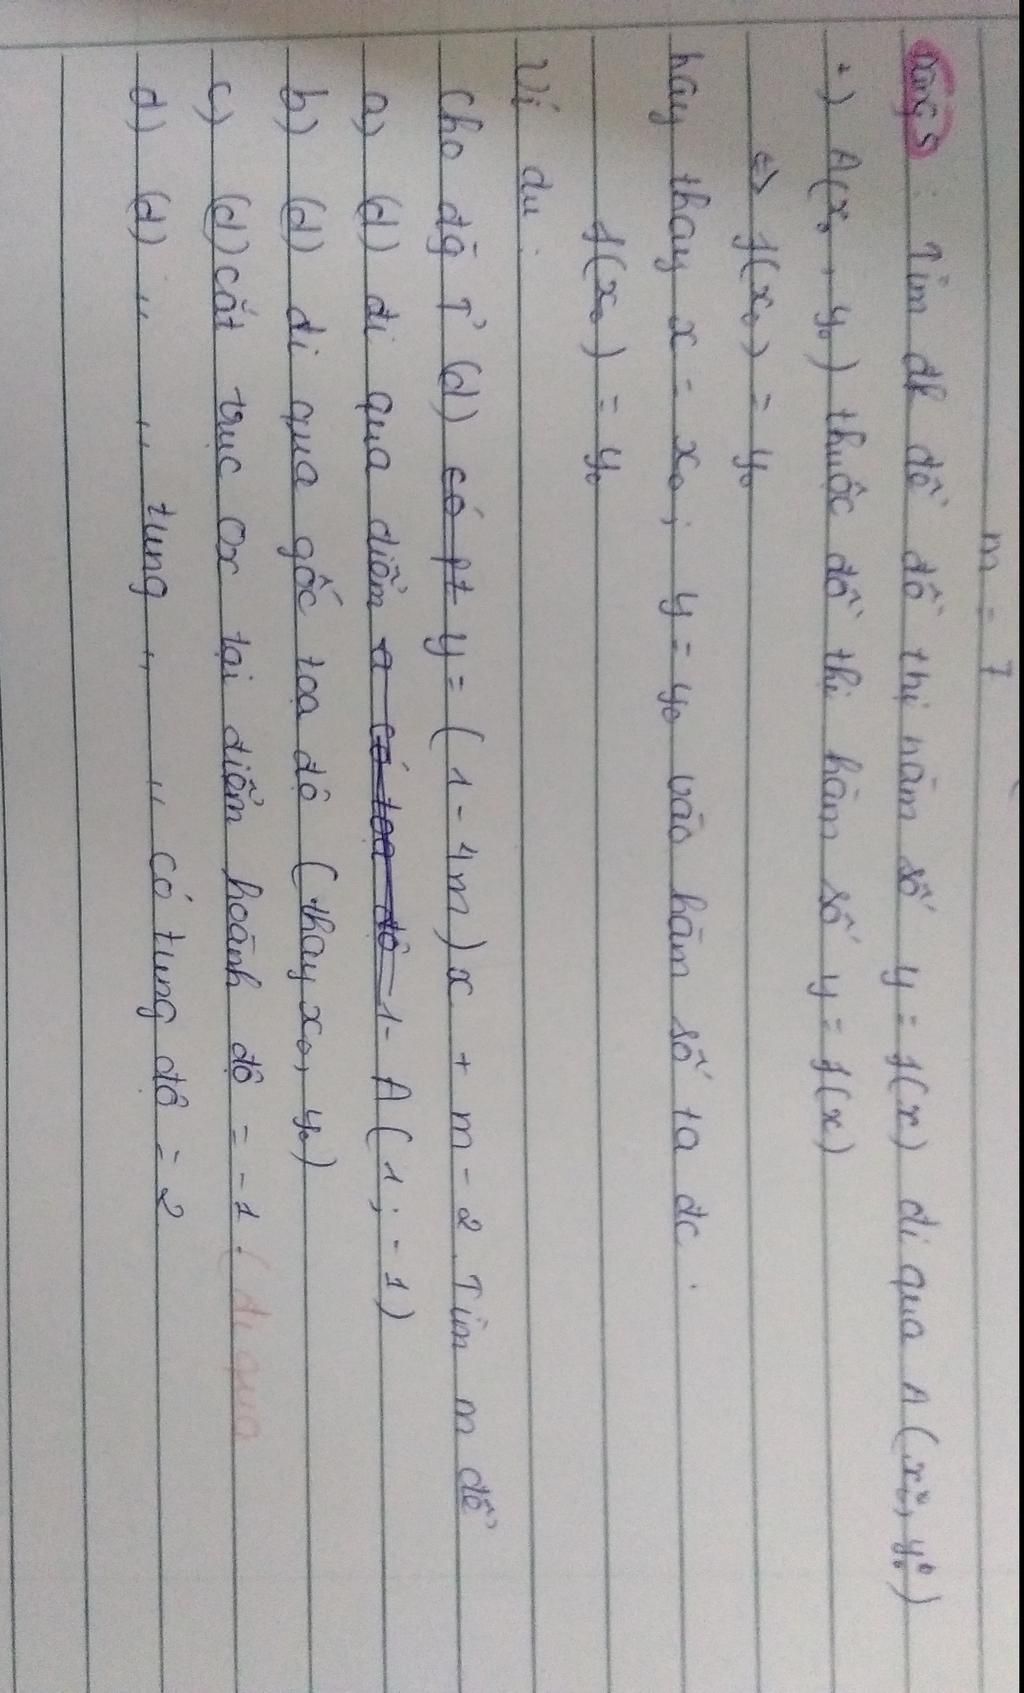 m = 7
Dạng 5: Tìm đk để đồ thị hàm số y = f(x) đi qua A (x₀, y₀)
+) A(x₀, y₀) thuộc đồ thị hàm số y = f(x)
<=> f(x₀) = y₀
hay thay x = x₀; y = y₀ vào hàm số ta đc:
f(x₀) = y₀
Ví dụ:
Cho đg T² (d) có pt y = (1 - 4m)x + m - 2. Tìm m để
a) (d) đi qua điểm a có toạ độ 1- A (1; -1)
b) (d) đi qua gốc toạ độ (thay x₀, y₀)
c) (d) cắt trục Ox tại điểm hoành độ = -1. (đi qua
d) (d) " " tung " " có tung độ = 2